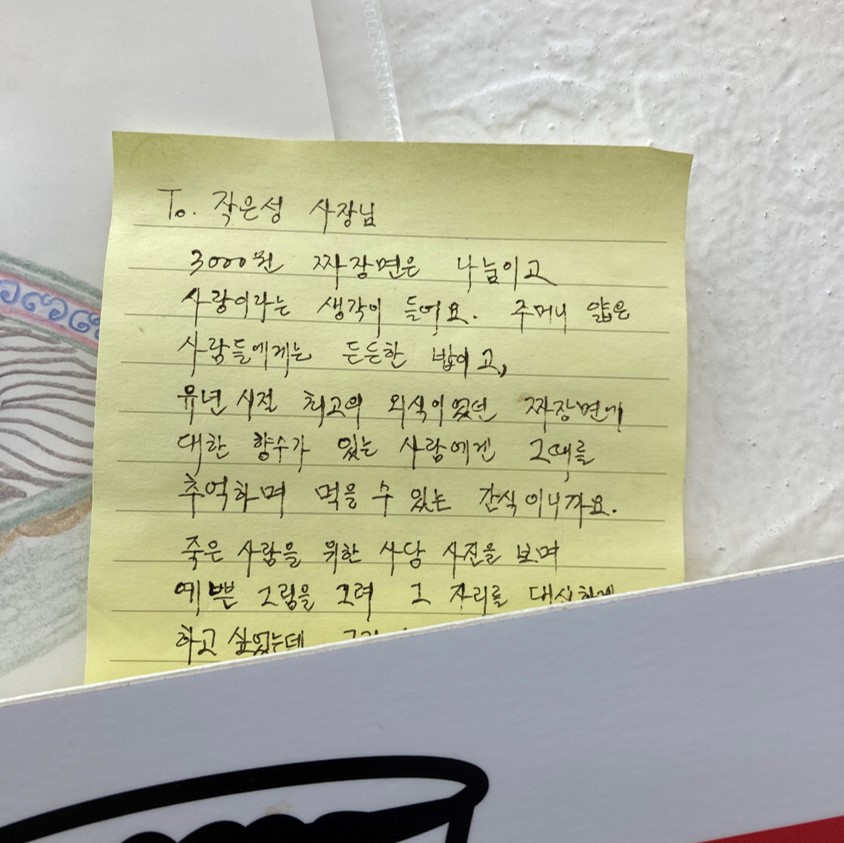 To. 작은성 사장님
3000원 짜장면은 나눔이고
사랑이라는 생각이 들어요. 주머니 얇은
사람들에게는 든든한 밥이고,
유년시절 최고의 외식이었던 짜장면에
대한 향수가 있는 사람에겐 그때를
추억하며 먹을 수 있는 간식이니까요.
죽은 사람을 위한 사당 사진을 보며
예쁜 그림을 그려 그 자리를 대신하게
하고 싶었는데